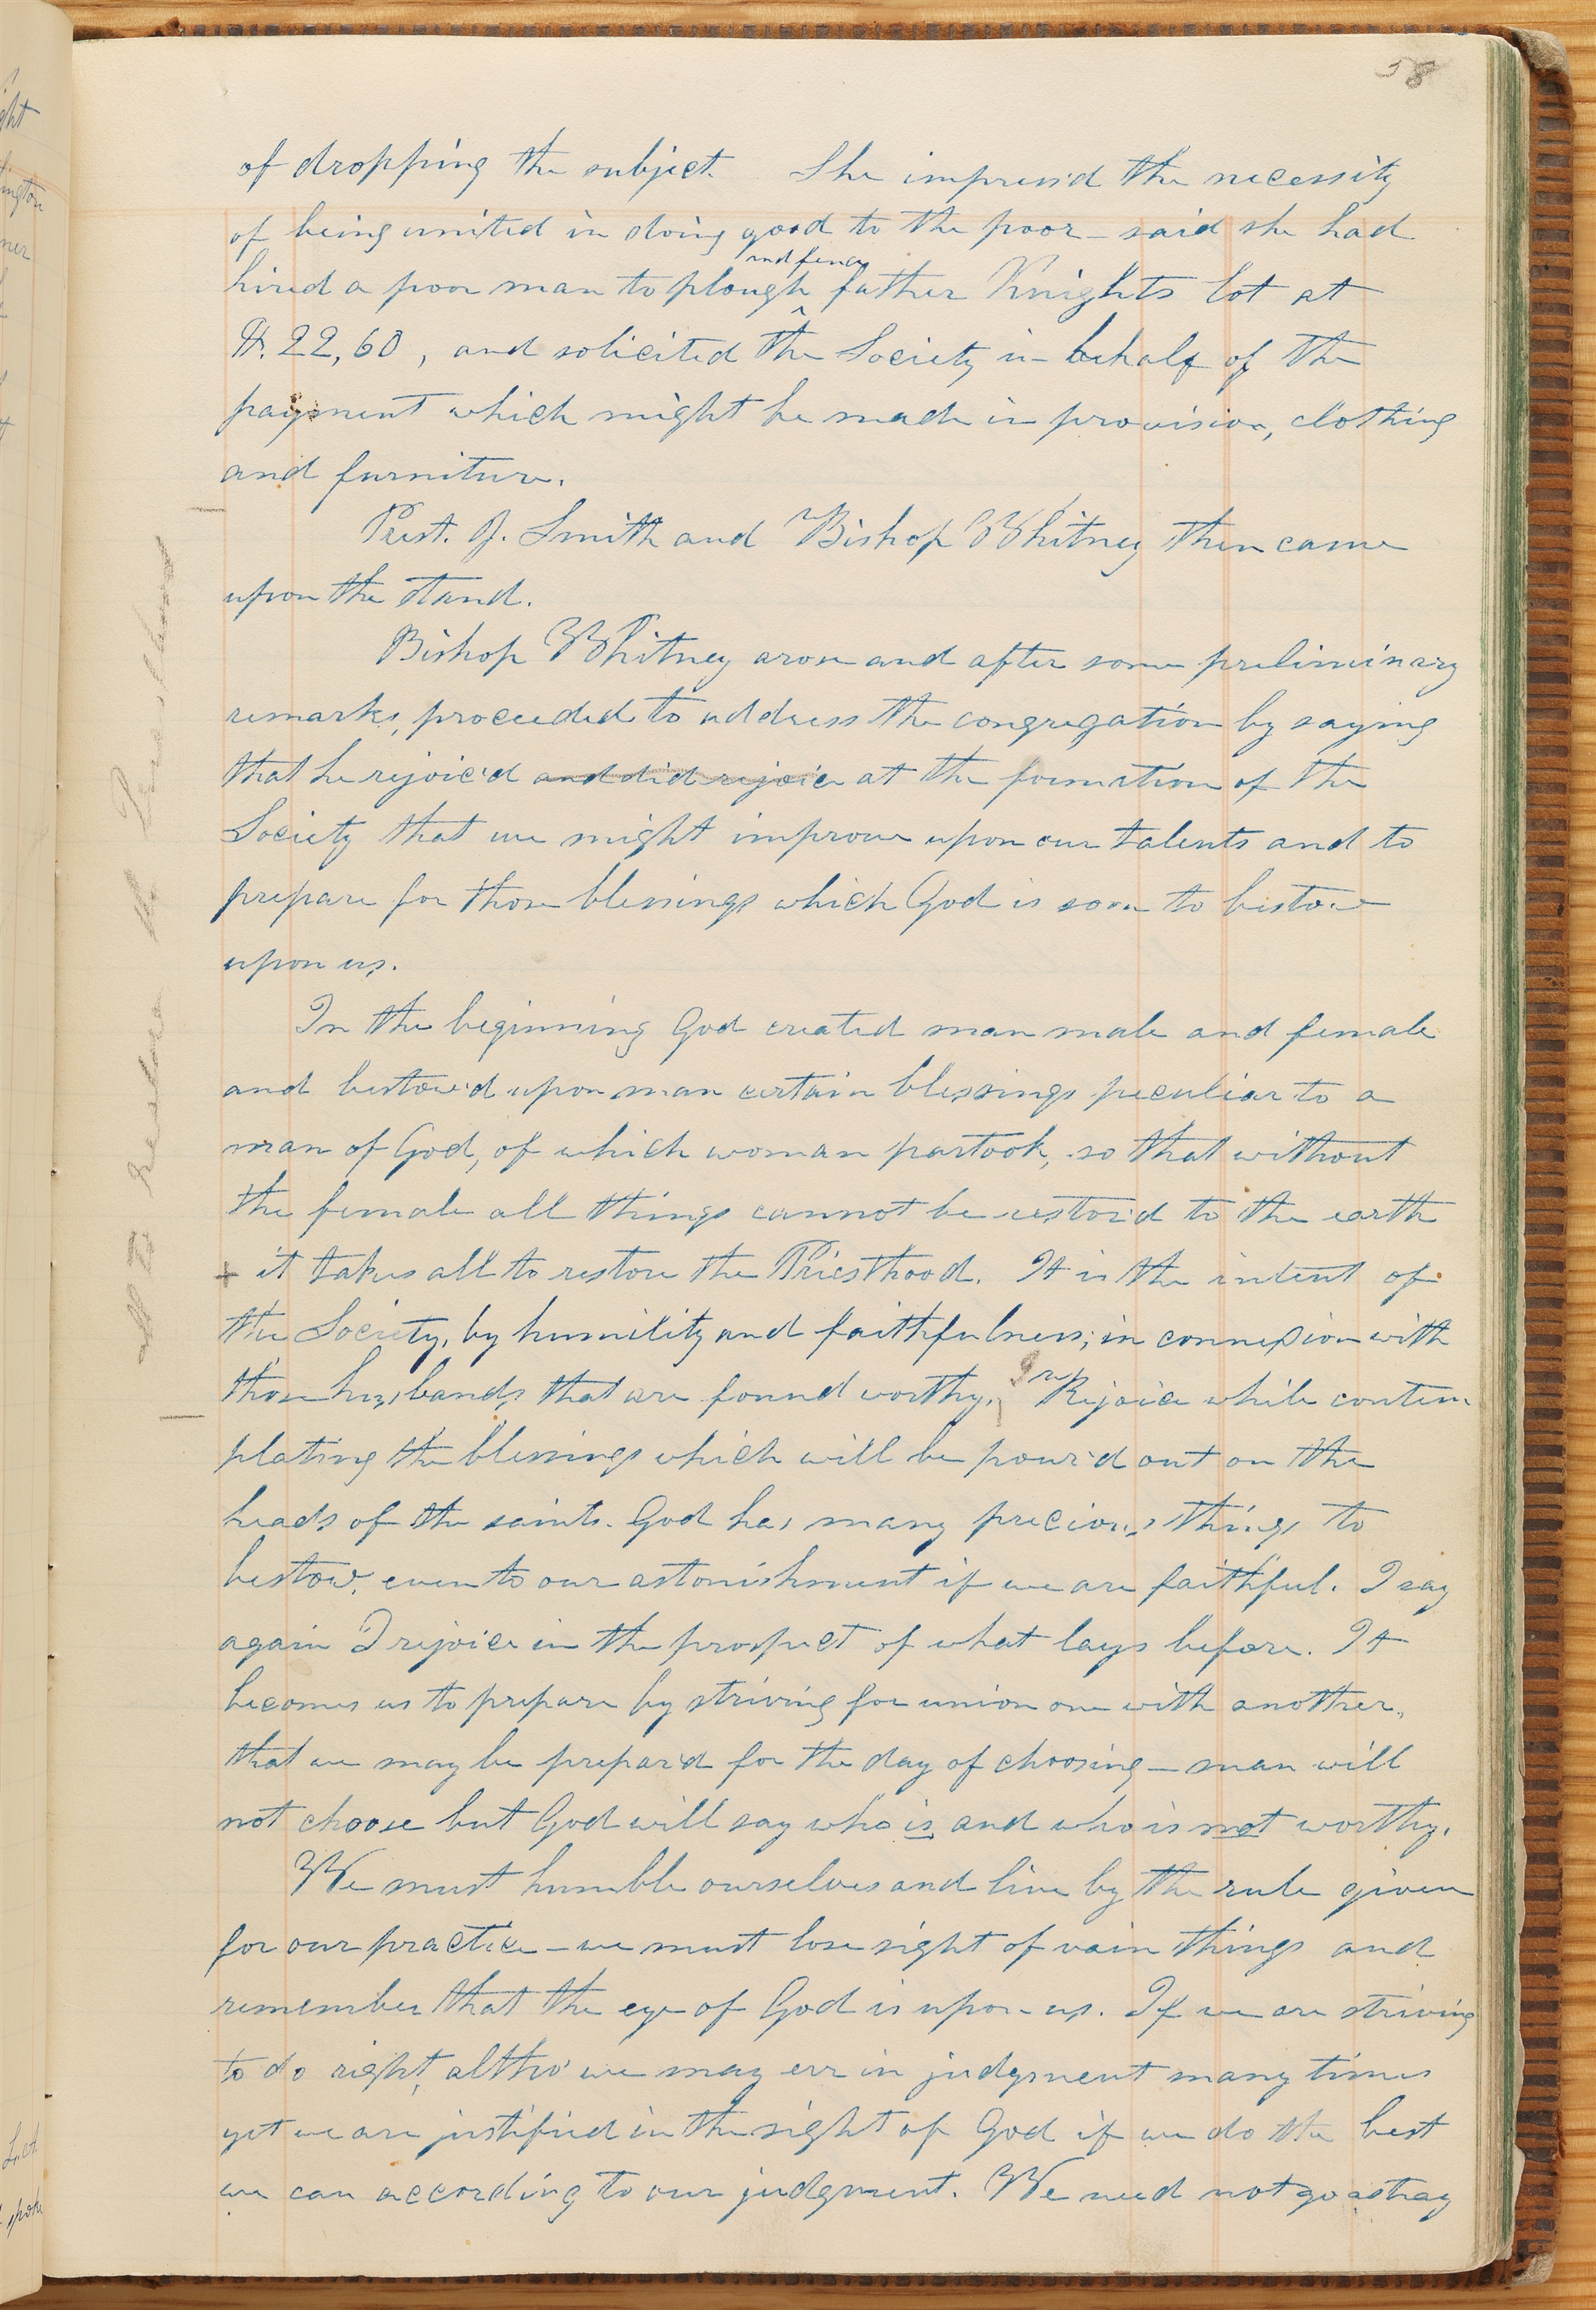 58
of dropping the subject. She impress'd the necessity
of being united in doing good to the poor — said she had
and fence
hired a poor man to plough ^ father Knights lot at
$. 22,60, and solicited the Society in behalf of the
payment which might be made in provision, clothing
and furniture.
Prest. J. Smith and Bishop Whitney then came
upon the stand.
Bishop Whitney arose and after some preliminary
remarks, proceeded to address the congregation by saying
that he rejoic'd and did rejoice at the formation of the
Society that we might improve upon our talents and to
prepare for those blessings which God is soon to bestow
upon us.
In the beginning God created man male and female
and bestow'd upon man certain blessings peculiar to a
man of God, of which woman partook, so that without
the female all things cannot be restor'd to the earth
+ it takes all to restore the Priesthood. It is the intent of
the Society, by humility and faithfulness; in connexion with
those husbands that are found worthy. Rejoice while contem
plating the blessings which will be pour'd out on the
heads of the saints. God has many precious things to
bestow, even to our astonishment if we are faithful. I say
again I rejoice in the prospect of what lays before. It
becomes us to prepare by striving for union one with another,
that we may be prepar'd for the day of choosing — man will
not choose but God will say who is and who is not worthy.
We must humble ourselves and live by the rule given
for our practice — we must lose sight of vain things and
remember that the eye of God is upon us. If we are striving
to do right, altho' we may err in judgment many times
yet we are justified in the sight of God if we do the best
we can according to our judgment. We need not go astray